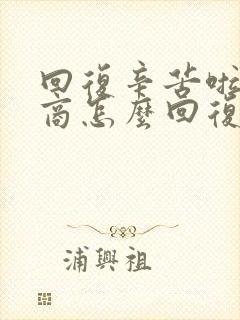 回復辛苦啦
商怎麼回復
浦興祖